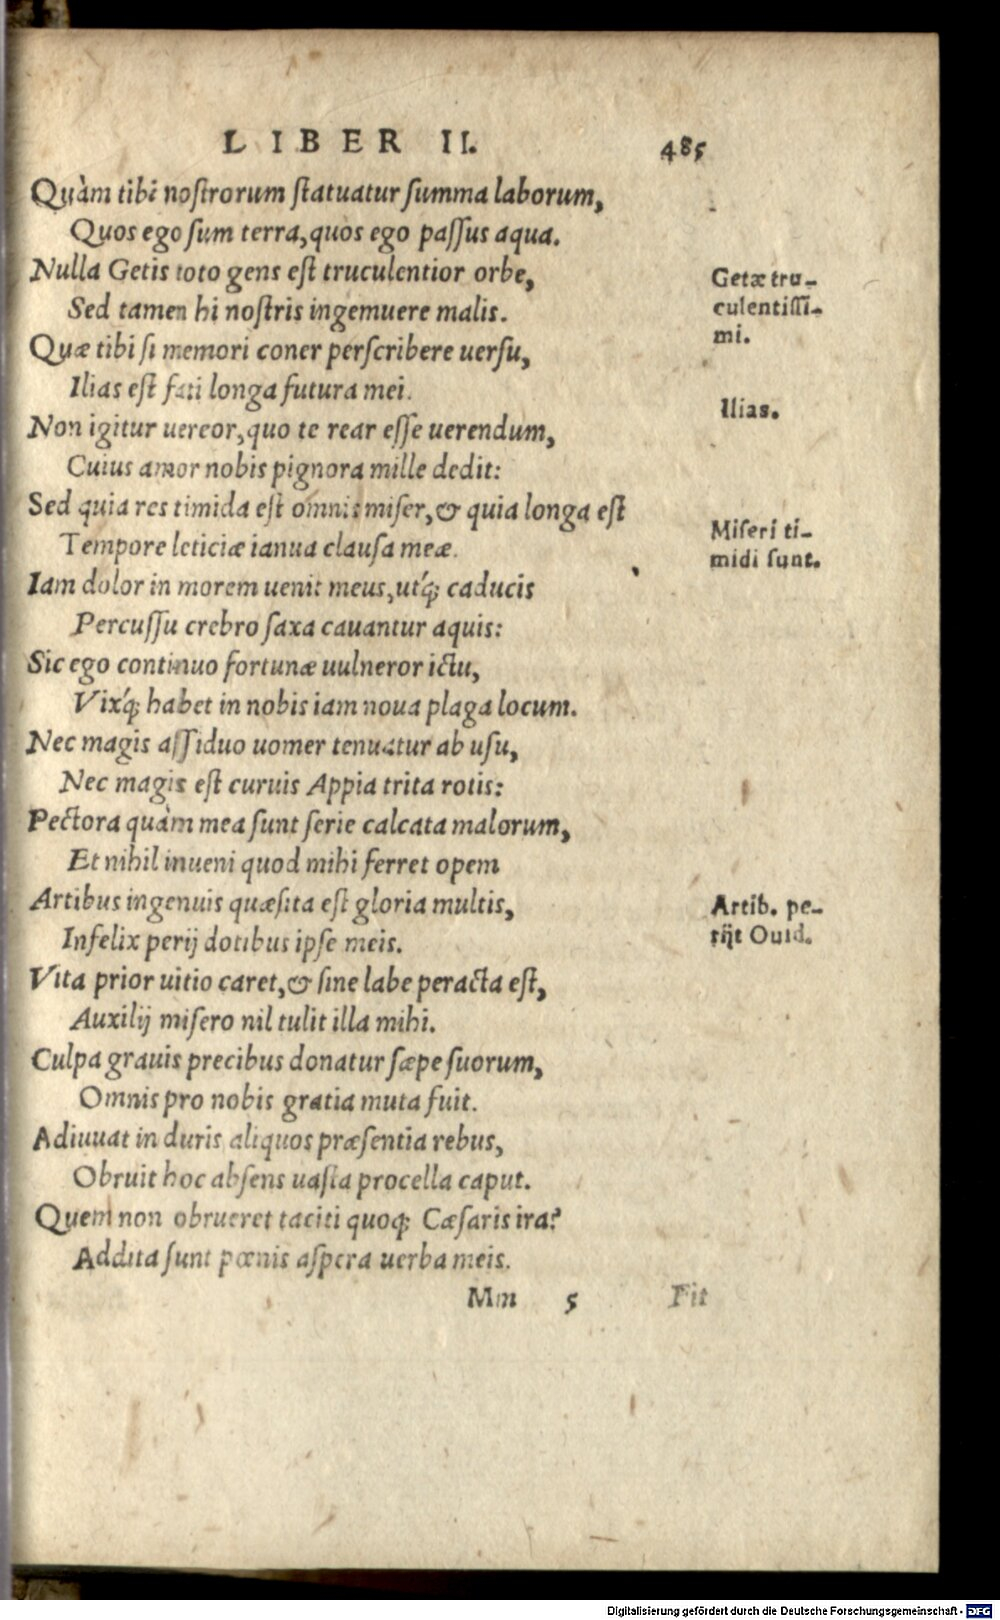 LIBER II. 485
Quàm tibi nostrorum statuatur summa laborum,
Quos ego sum terra, quos ego passus aqua.
Nulla Getis toto gens est truculentior orbe,
Sed tamen hi nostris ingemuere malis.
Getæ tru-
culentissi-
mi.
Quæ tibi si memori coner perscribere uersu,
Ilias est fati longa futura mei.
Ilias.
Non igitur uereor, quo te rear esse uerendum,
Cuius amor nobis pignora mille dedit:
Sed quia res timida est omnis miser, & quia longa est
Tempore leticiæ ianua clausa meæ.
Miseri ti-
midi sunt.
Iam dolor in morem uenit meus, utq́; caducis
Percussu crebro saxa cauantur aquis:
Sic ego continuo fortunæ uulneror ictu,
Vixq́; habet in nobis iam noua plaga locum.
Nec magis assiduo uomer tenuatur ab usu,
Nec magis est curuis Appia trita rotis:
Pectora quàm mea sunt serie calcata malorum,
Et nihil inueni quod mihi ferret opem
Artibus ingenuis quæsita est gloria multis,
Infelix perij dotibus ipse meis.
Artib. pe-
rijt Ouid.
Vita prior uitio caret, & sine labe peracta est,
Auxilij misero nil tulit illa mihi.
Culpa grauis precibus donatur sæpe suorum,
Omnis pro nobis gratia muta fuit.
Adiuuat in duris aliquos præsentia rebus,
Obruit hoc absens uasta procella caput.
Quem non obrueret taciti quoq; Cæsaris ira?
Addita sunt pœnis aspera uerba meis.
Mm 5 Fit
Digitalisierung gefördert durch die Deutsche Forschungsgemeinschaft - DFG